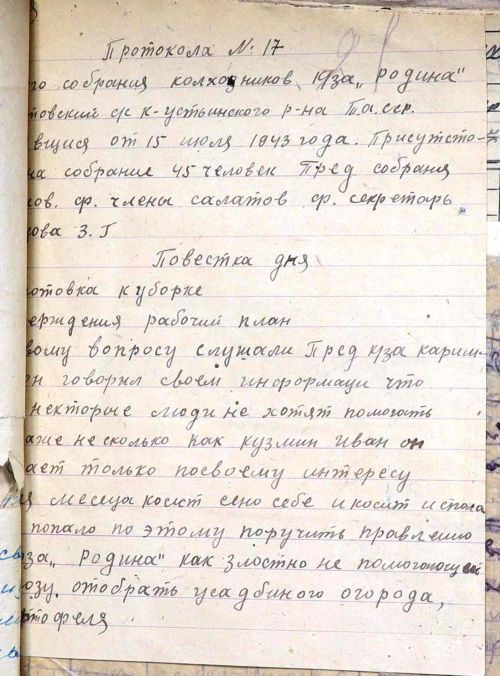 Протокола №. 17
го собрания колхозников к/за „Родина"
товский ф к-устьинского р-на Б.а.сср.
вщися от 15 июля 1943 года. Присутство-
на собрание 45 человек Пред собрания
ков. ф. члены салатов ф. секретарь
ова З. Г
Повестка дня
отовка к уборке
ерждения рабочий план
вому вопросу слушали Пред к/за карим-
н говорил своем информаци что
некоторые люди не хотят помогать
аже несколько как кузмин иван он
ает только посвоему интересу
я месеца косит сено себе и косит исполо
попало по этому поручить правлению
за „Родина" как злостно не помогающей
озу отобрать усадбиного огорода,
тофеля